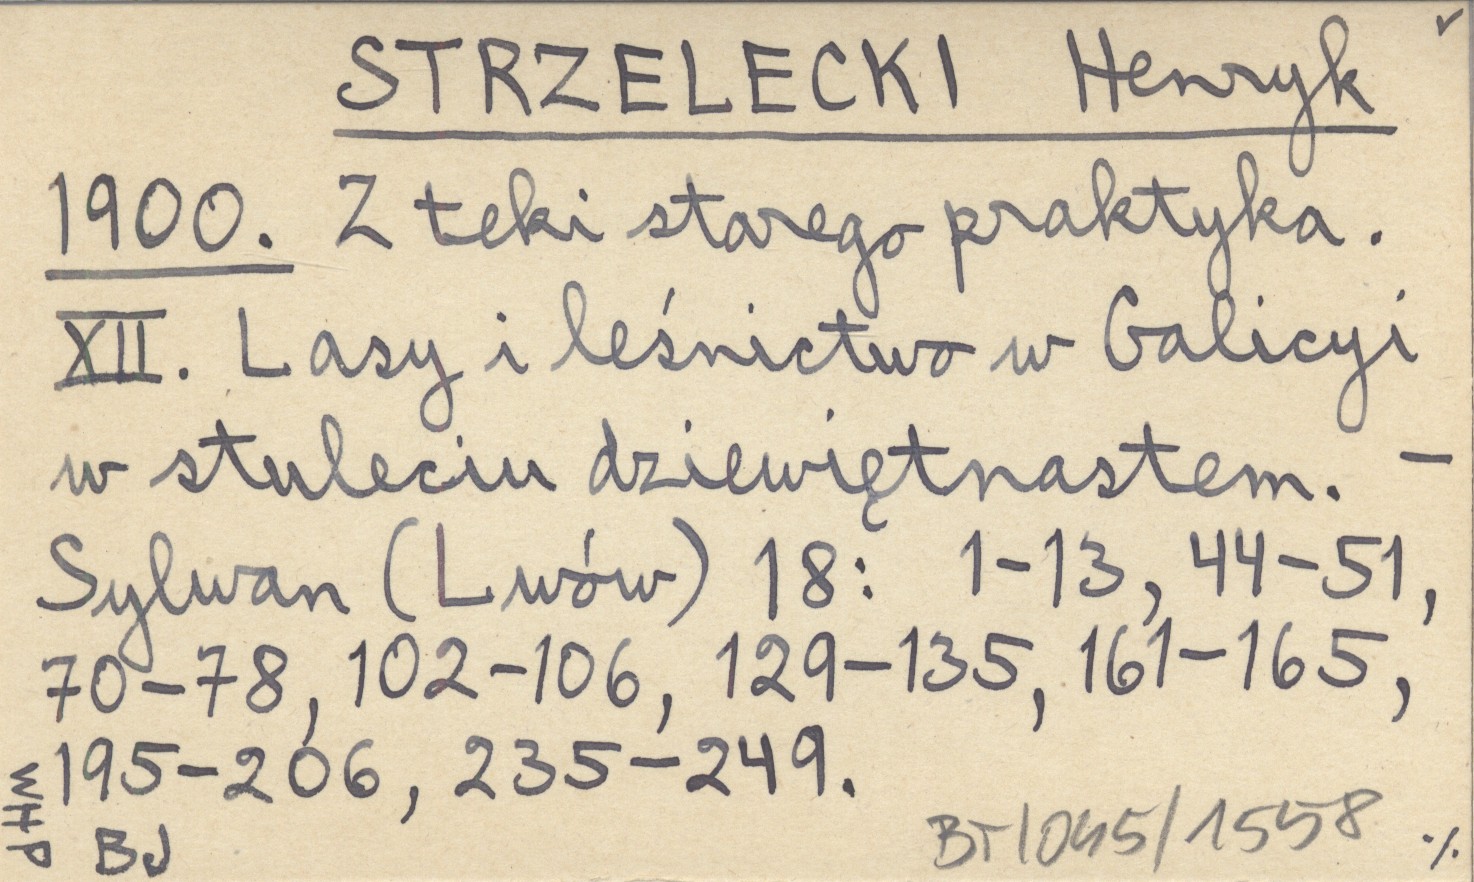 STRZELECKI Henryk
1900. Z teki starego praktyka.
XII. Lasy i leśnictwo w Galicyi
w stuleciu dziewiętnastem. –
Sylwan (Lwów) 18: 1-13, 44-51,
70-78, 102-106, 129-135, 161-165,
195-206, 235-249.
WHP
BJ